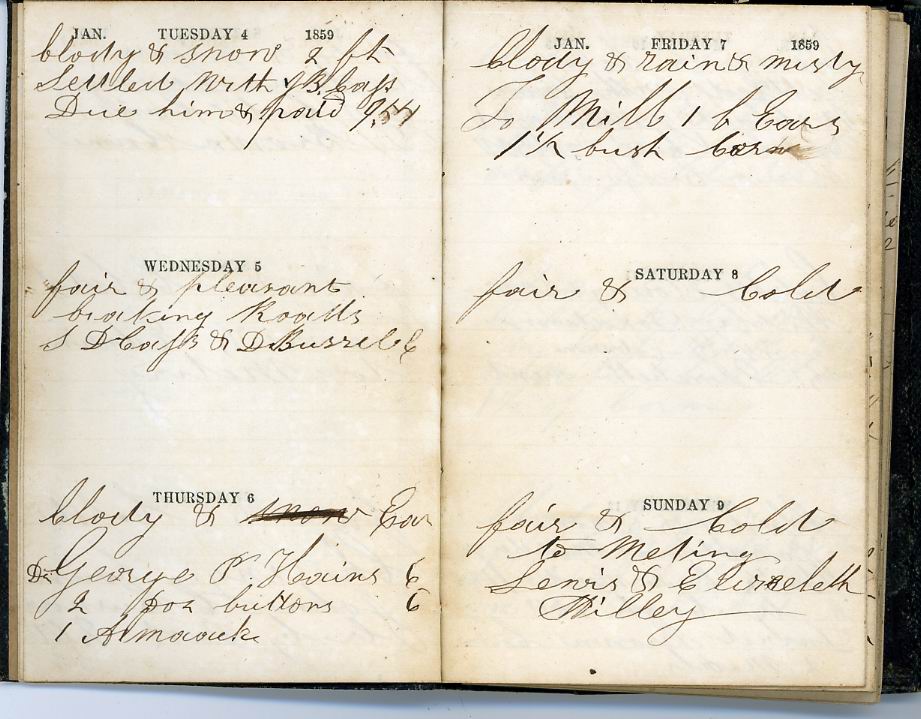 JAN. TUESDAY 4 1859
Clody & snow 2 ft
Settled With J B Cass
Due him & paid
WEDNESDAY 5
fair & pleasant
braking Roads
S D Cass & D Burrel
THURSDAY 6
Clody & snow
Dr George P. Hains 6
2 doz buttons 6
1 Almanack
JAN. FRIDAY 7 1859
Clody & rain & misty
To Mill 1 b Ears
1 1/2 bush Corn
SATURDAY 8
fair & Cold
SUNDAY 9
fair & Cold
to Meting
Lewis & Elizebeth
Hilley